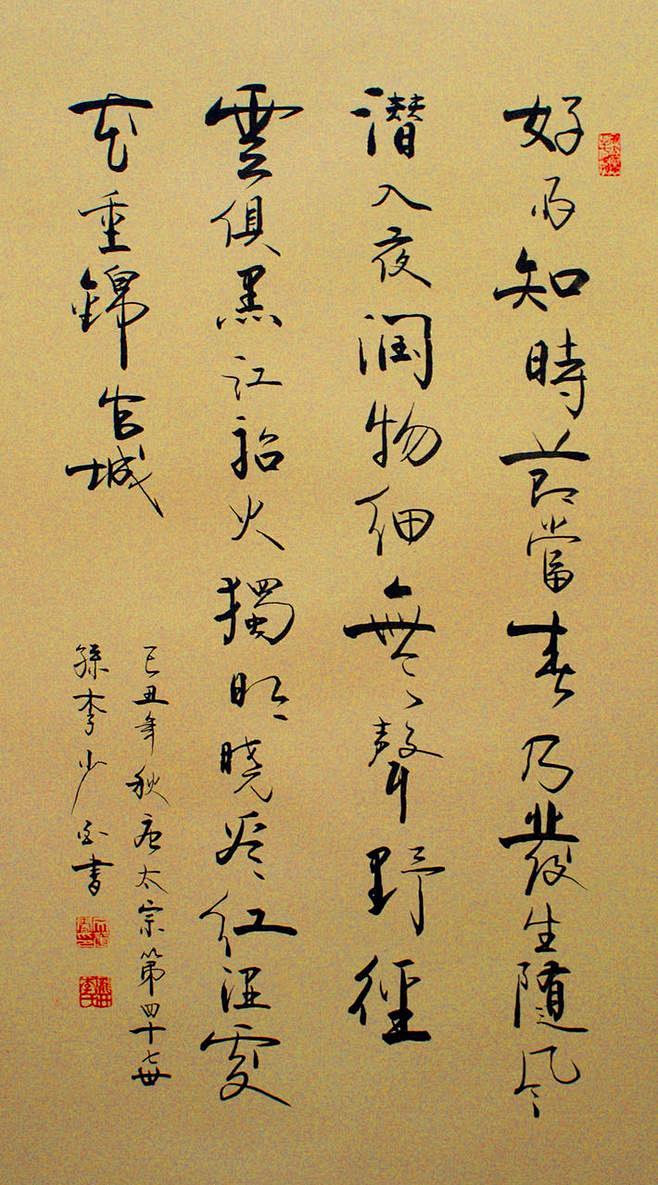 好雨知時節當春乃發生隨風
潛入夜潤物細無聲野徑
雲俱黑江船火獨明曉看紅濕處
花重錦官城
己丑年秋唐太宗第四十七世
孫李少書